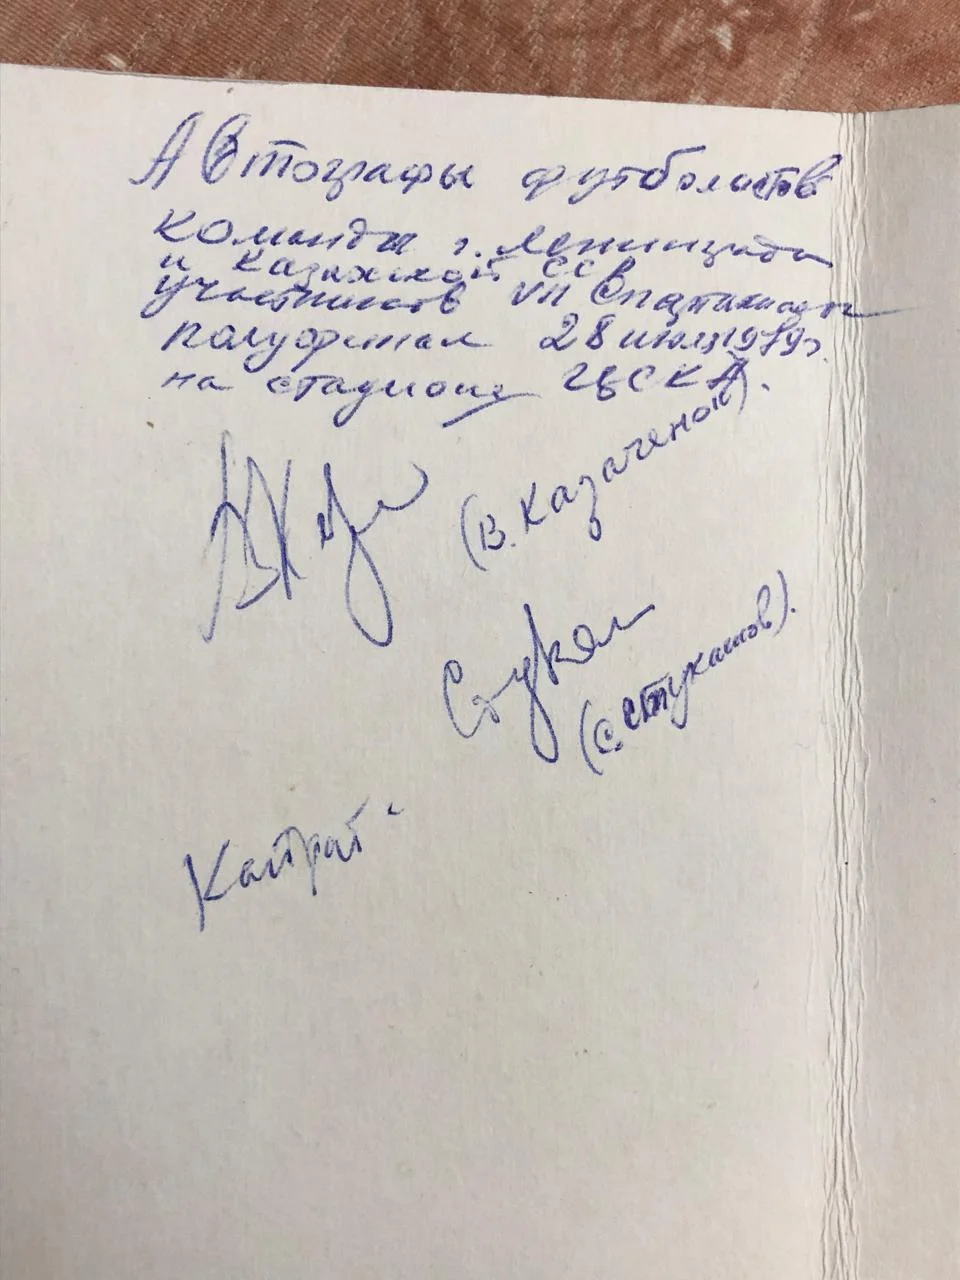 Автографы футболистов
команды г. Ленинграда
и Казахской ССР
участников VII Спартакиады
полуфинал 28 июля 1979 г.
на стадионе ЦСКА.
(В. Казаченок).
(С. Стукашов).